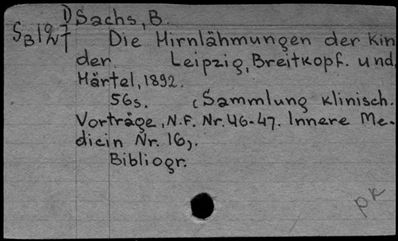 D Sachs, B.
SB127
Die Hirnlähmungen der Kin
der. Leipzig, Breitkopf. und
Härtel, 1892.
56s. (Sammlung klinisch.
Vorträge, N.F. Nr. 46-47. Innere Me-
dicin Nr. 16).
Bibliogr.
pk